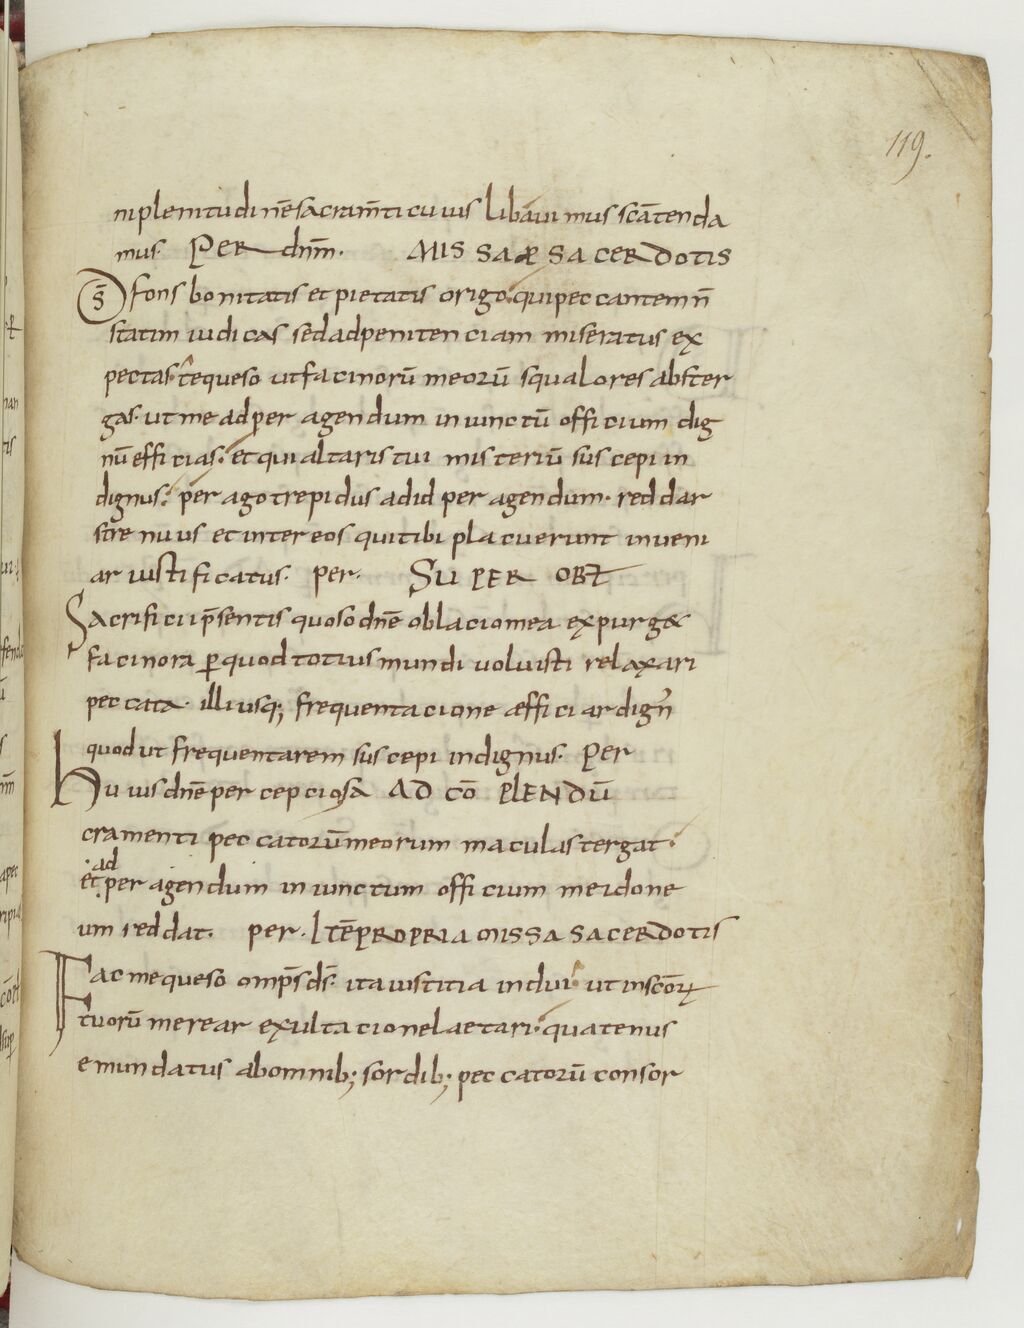 119.
niplenitudinē sacram̄ti cuius libauimus sc̄a tenda
mus PER dnm̄. MISSAE SACERDOTIS
D̄s fons bonitatis et pietatis origo. qui peccantem n̄
statim iudicas sed ad penitenciam miseratus ex
pectas. te queso ut facinorū meorū squalores abster
gas. ut me ad peragendum iniunctū officium dig
nū efficias. et qui altaris tui misteriū suscepi in
dignus. perago trepidus ad id peragendum. reddar
strenuus et inter eos qui tibi placuerunt inueni
ar iustificatus. per. SUPER OBL̄
Sacrificii p̄sentis quoso dn̄e oblacio mea expurg&
facinora ꝑ quod totius mundi uoluisti relaxari
peccata. illiusq; frequentacione æfficiar dign̄
quod ut frequentarem suscepi indignus. Per
Huius dn̄e percepcio sa AD CŌPLENDŪ
cramenti peccatorū meorum maculas tergat.
ad
et peragendum iniunctum officium me idone
um reddat. per. ITĒ PROPRIA MISSA SACERDOTIS
Fac me queso omp̄s d̄s. ita iustitia indui. ut in sc̄orꝝ
tuorū merear exultacione laetari. quatenus
emundatus ab omnib; sordib; peccatorū consor